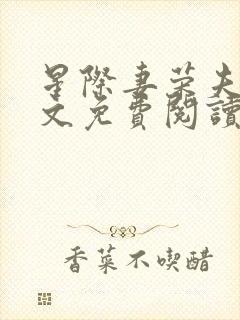 星際妻荣夫
文免費閱讀
香菜不喫醋